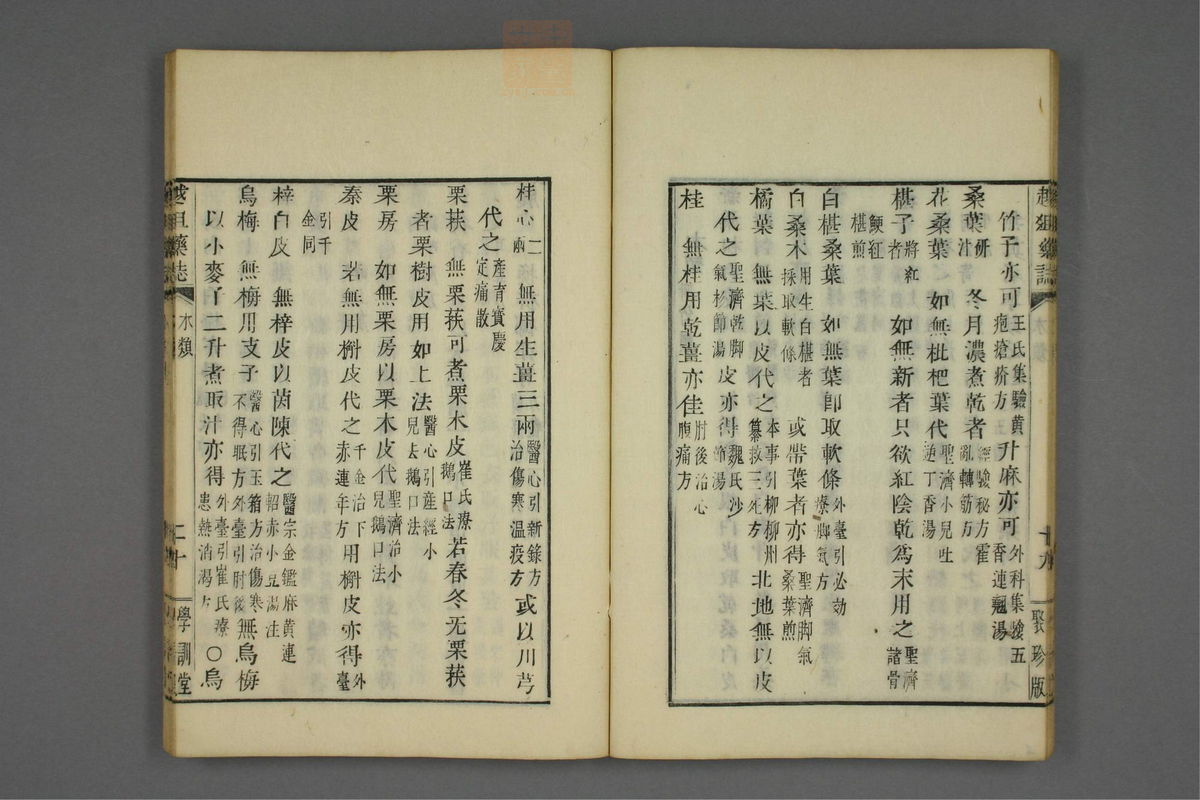 竹子亦可王氏集驗黄疱瘡疥方升麻亦可外科集驗五香連翹湯
桑葉研汁 冬月濃煮乾者經驗秘方霍亂轉筋方
花桑葉 如無枇杷葉代聖濟小兒吐逆丁香湯
椹子將紅者 如無新者只欲紅陰乾爲末用之聖濟諸骨
鯁紅椹煎
白椹桑葉 如無葉卽取軟條外臺引必効療脚氣方
白桑木用生白椹者採取軟條 或帶葉者亦得聖濟脚氣桑葉煎
橘葉 無葉以皮代之本事引柳柳州纂救三死方北地無以皮
代之聖濟乾脚氣杉節湯皮亦得魏氏沙節湯
桂 無桂用乾薑亦佳肘後治心腹痛方
聚珍版
桂心二兩 無用生薑三兩醫心引新錄方治傷寒溫疫方或以川芎
代之産育寶慶定痛散
栗莢 無栗莢可煮栗木皮崔氏療鵝口法若春冬无栗莢
者栗樹皮用如上法醫心引産經小兒去鵝口法
栗房 如無栗房以栗木皮代聖濟治小兒鵝口法
秦皮 若無用槲皮代之千金治下赤連年方用槲皮亦得外臺
引千金同
梓白皮 無梓皮以茵陳代之醫宗金鑑麻黄連軺赤小豆湯注
烏梅 無梅用支子醫心引玉箱方治傷寒不得眠方外臺引肘後無烏梅
以小麥了二升煮取汁亦得外臺引崔氏療患熱消渴方〇烏
木類
二十
學訓堂